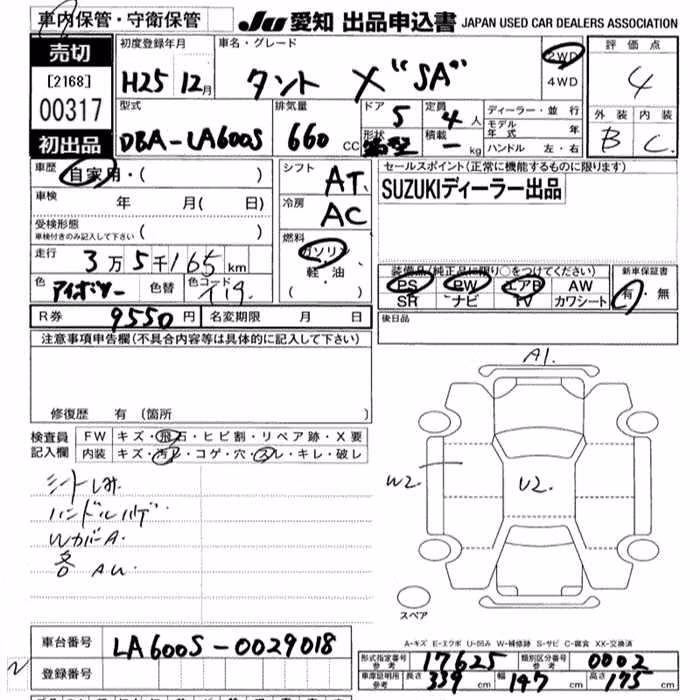 車内保管・守衛保管
JU 愛知 出品申込書 JAPAN USED CAR DEALERS ASSOCIATION
売切
[2168]
00317
初出品
初度登録年月
H25 12月
車名・グレード
タント X "SA"
2WD
4WD
評価点
4
外装 内装
B C
型式
DBA-LA600S
排気量
660 CC
ドア 5
形状
定員 4 人
積載 ー kg
ディーラー・並行
モデル年式 年
ハンドル 左・右
車歴
自家用・( )
車検 年 月( 日)
受検形態
車検付きのみ記入して下さい ( )
走行
3万5千165 km
色 色替 色コード
R券 9550円 名変期限 月 日
シフト
AT
冷房
AC
燃料
ガソリン
軽・油
( ・ )
セールスポイント(正常に機能するものに限ります)
SUZUKIディーラー出品
装備品(純正品に限り○をつけてください)
PS PW エアB AW
SR ナビ TV カワシート
新車保証書
有・無
後日品
注意事項申告欄(不具合内容等は具体的に記入して下さい)
修復歴 有 (箇所 )
検査員記入欄
FW キズ・飛石・ヒビ割・リペア跡・X要
内装 キズ・汚レ・コゲ・穴・スレ・キレ・破レ
シートしみ
ハンドルハゲ
WカバA.
各 AU.
A1.
W2.
U2.
スペア
A-キズ E-エクボ U-凹み W-補修跡 S-サビ C-腐食 XX-交換済
車台番号 LA600S-0029018
登録番号
形式指定番号参考 17625 類別区分番号参考 0002
車庫証明用参考 長さ 339 cm 幅 147 cm 高さ 175 cm